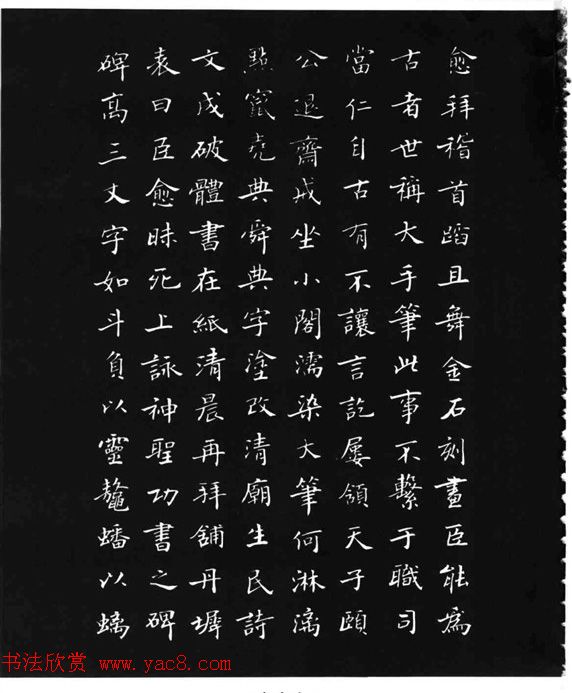 愈拜稽首蹈且舞金石刻畫臣能爲
古者世稱大手筆此事不繫于職司
當仁自古有不讓言訖屢頷天子頤
公退齋戒坐小閣濡染大筆何淋漓
點竄堯典舜典字塗改清廟生民詩
文成破體書在紙清晨再拜鋪丹墀
表曰臣愈昧死上詠神聖功書之碑
碑高三丈字如斗負以靈鼇蟠以螭
书法欣赏 www.yac8.com